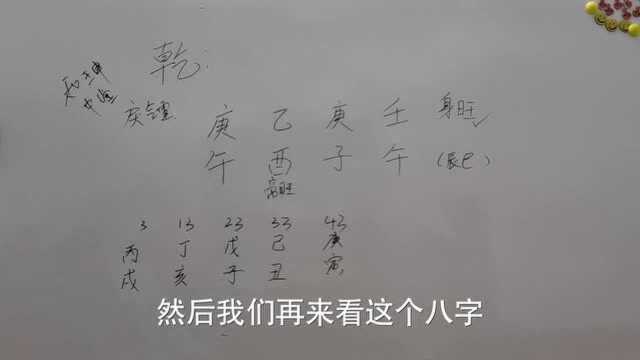 乾:
庚 乙 庚 壬 身旺
午 酉 子 午 (辰巳)
3 13 23 33 43
丙 丁 戊 己 庚
戌 亥 子 丑 寅
然后我们再来看这个八字